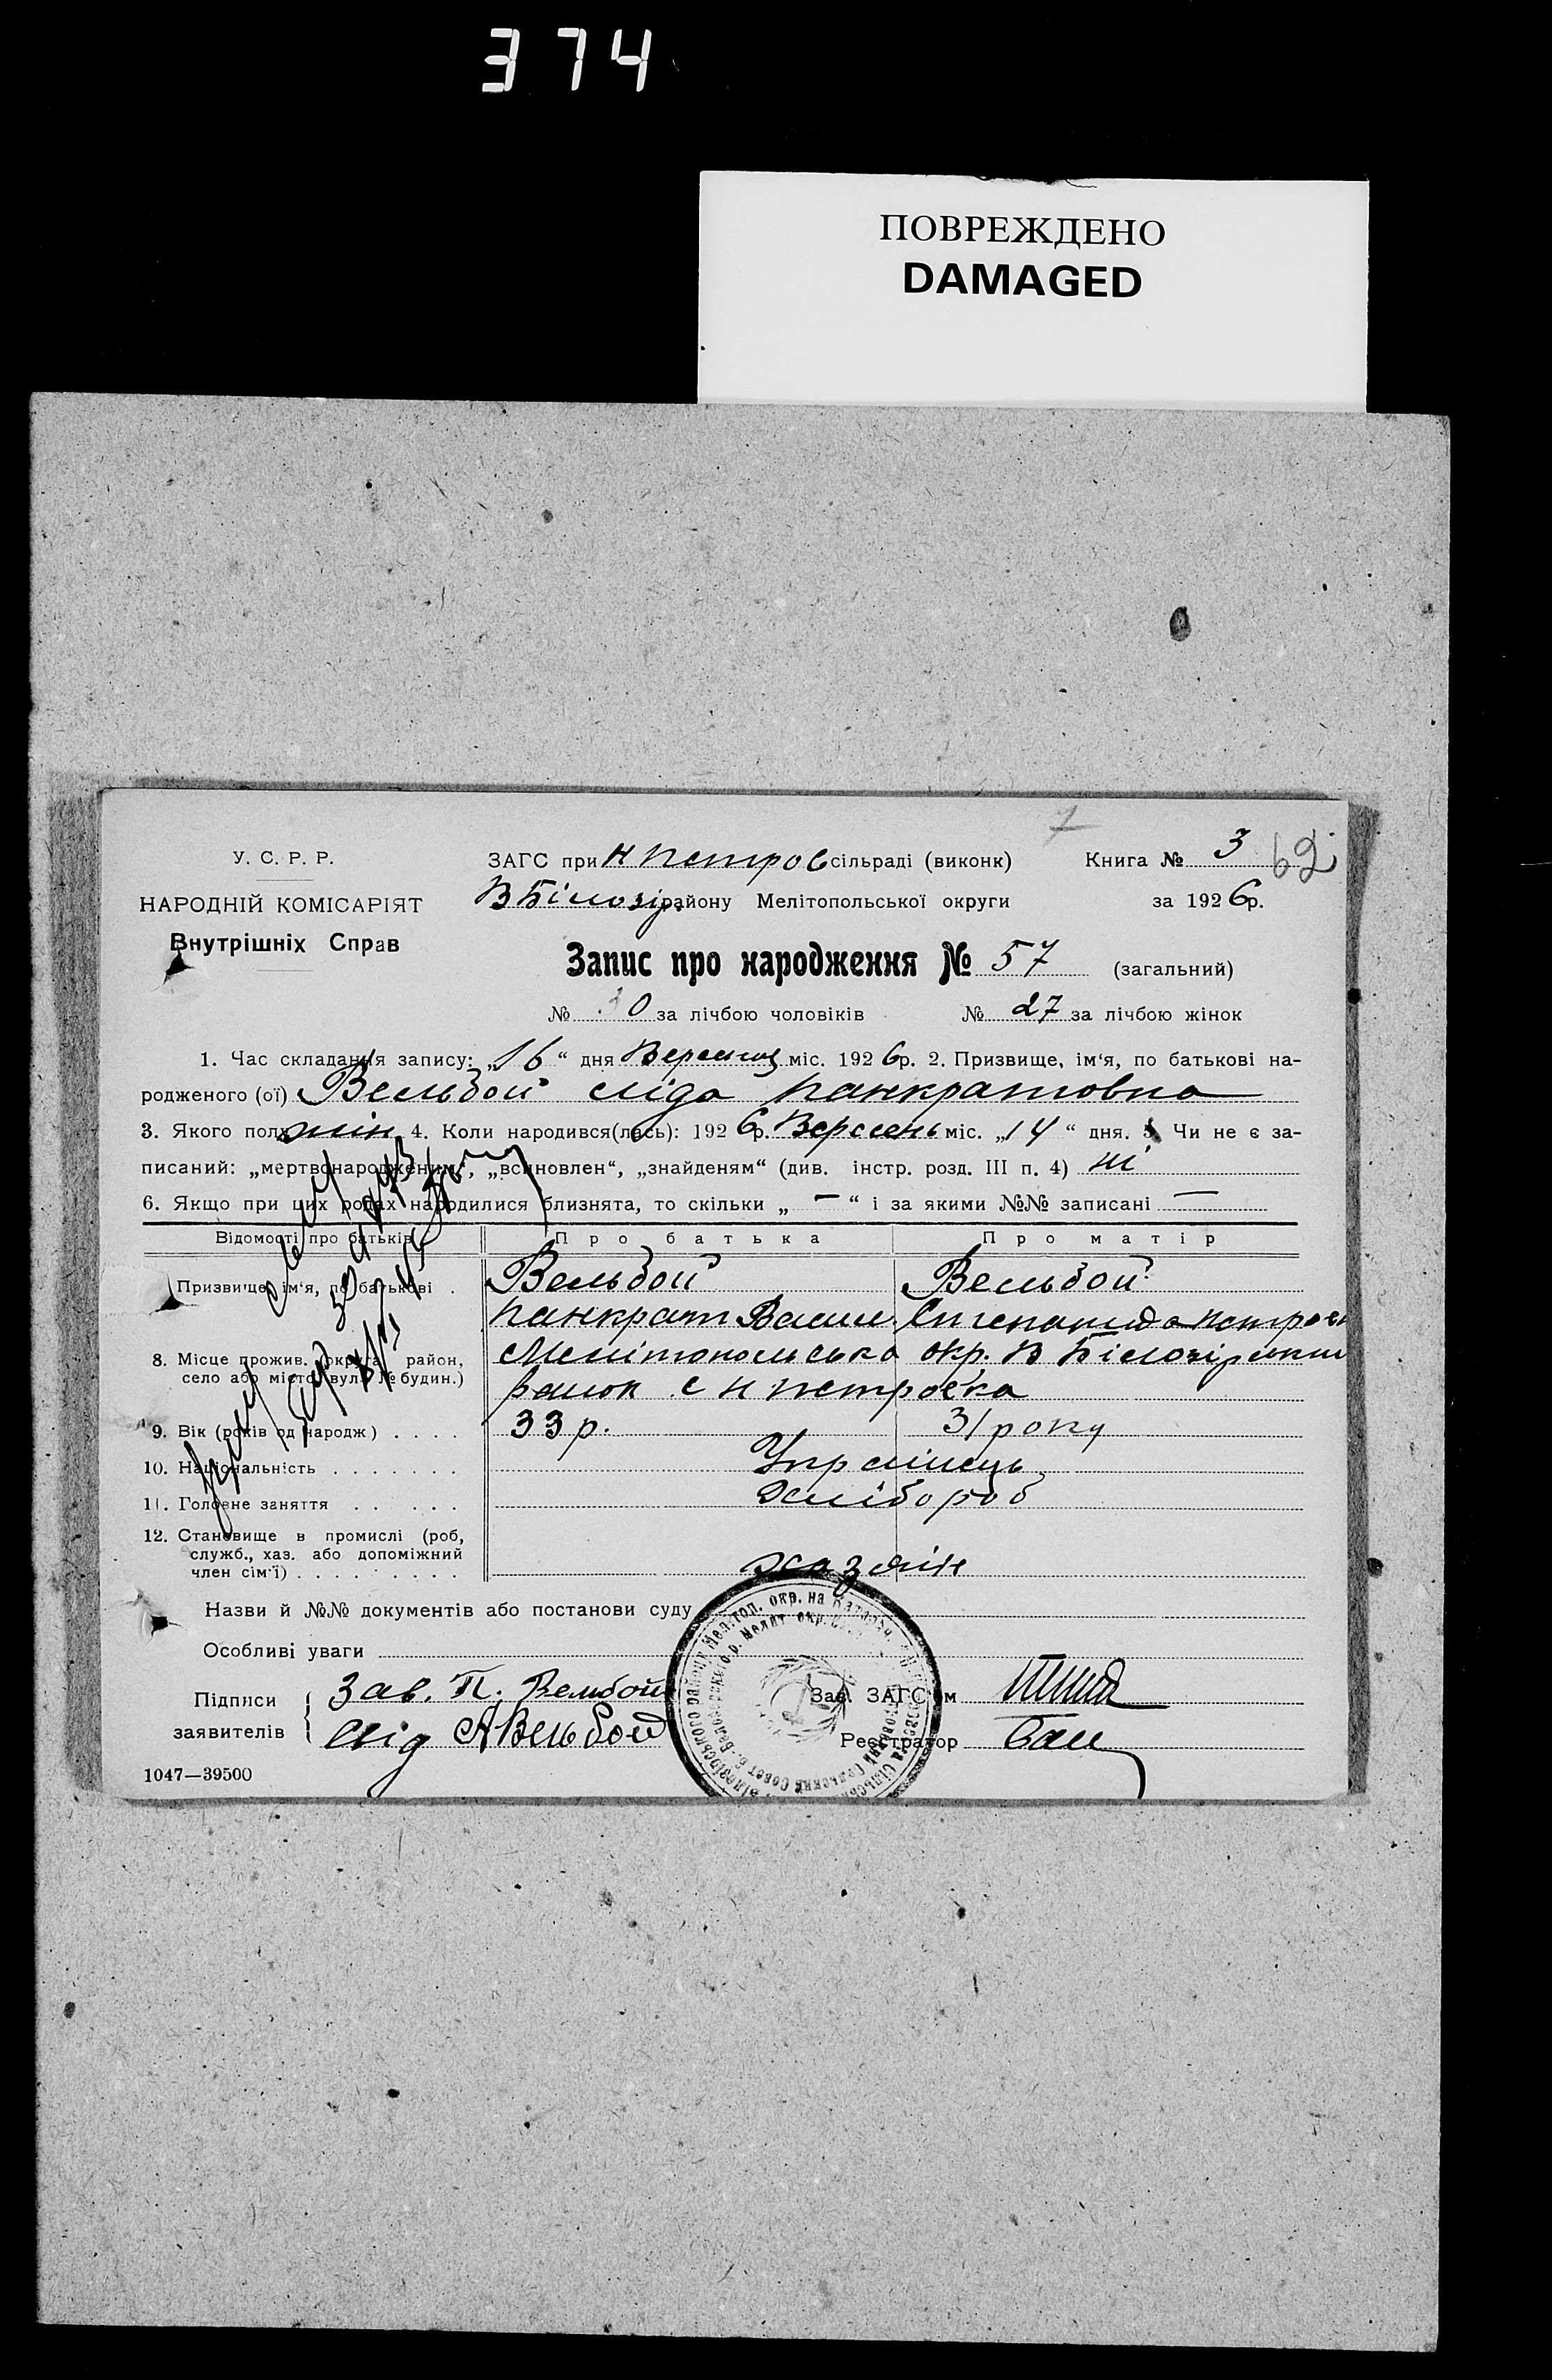 374
ПОВРЕЖДЕНО
DAMAGED
У. С. Р. Р.
НАРОДНІЙ КОМІСАРІЯТ
Внутрішніх Справ
ЗАГС при Н Петров сільраді (виконк)
Книга № 3 62
В Білозір. району Мелітопольської округи
за 1926р.
Запис про народження № 57 (загальний)
№ 30 за лічбою чоловіків № 27 за лічбою жінок
1. Час складання запису: „16“ дня Вересня міс. 1926р. 2. Призвище, ім‘я, по батькові на-
родженого (ої) Вельбой Ліда Панкратовна
3. Якого полу жін. 4. Коли народився(лась): 1926р. Вересень міс. „14“ дня. 5. Чи не є за-
писаний: „мертвонародженим“, „всиновлен“, „знайденям“ (див. інстр. розд. III п. 4) ні
6. Якщо при цих родах народилися близнята, то скільки „—“ і за якими №№ записані —
Відомості про батьків Про батька Про матір
Призвище, ім‘я, по батькові . Вельбой Вельбой
Панкрат Васил. Степанида Петров
8. Місце прожив. (округа, район,
село або місто, вул. № будин.)
Мелітопольська окр. В Білозірський
район с Н Петровка
9. Вік (років од народж) . . . . 33 р. 31 року
10. Національність . . . . . . . Українець
11. Головне заняття . . . . . Хлібороб
12. Становище в промислі (роб,
служб., хаз. або допоміжний
член сім‘ї) . . . . . . . . . хазяін
Назви й №№ документів або постанови суду
Особливі уваги
Підписи
заявителів
Зав. П. Вельбой
Слід А Вельбой
Зав. ЗАГС‘ом
Реєстратор
1047—39500